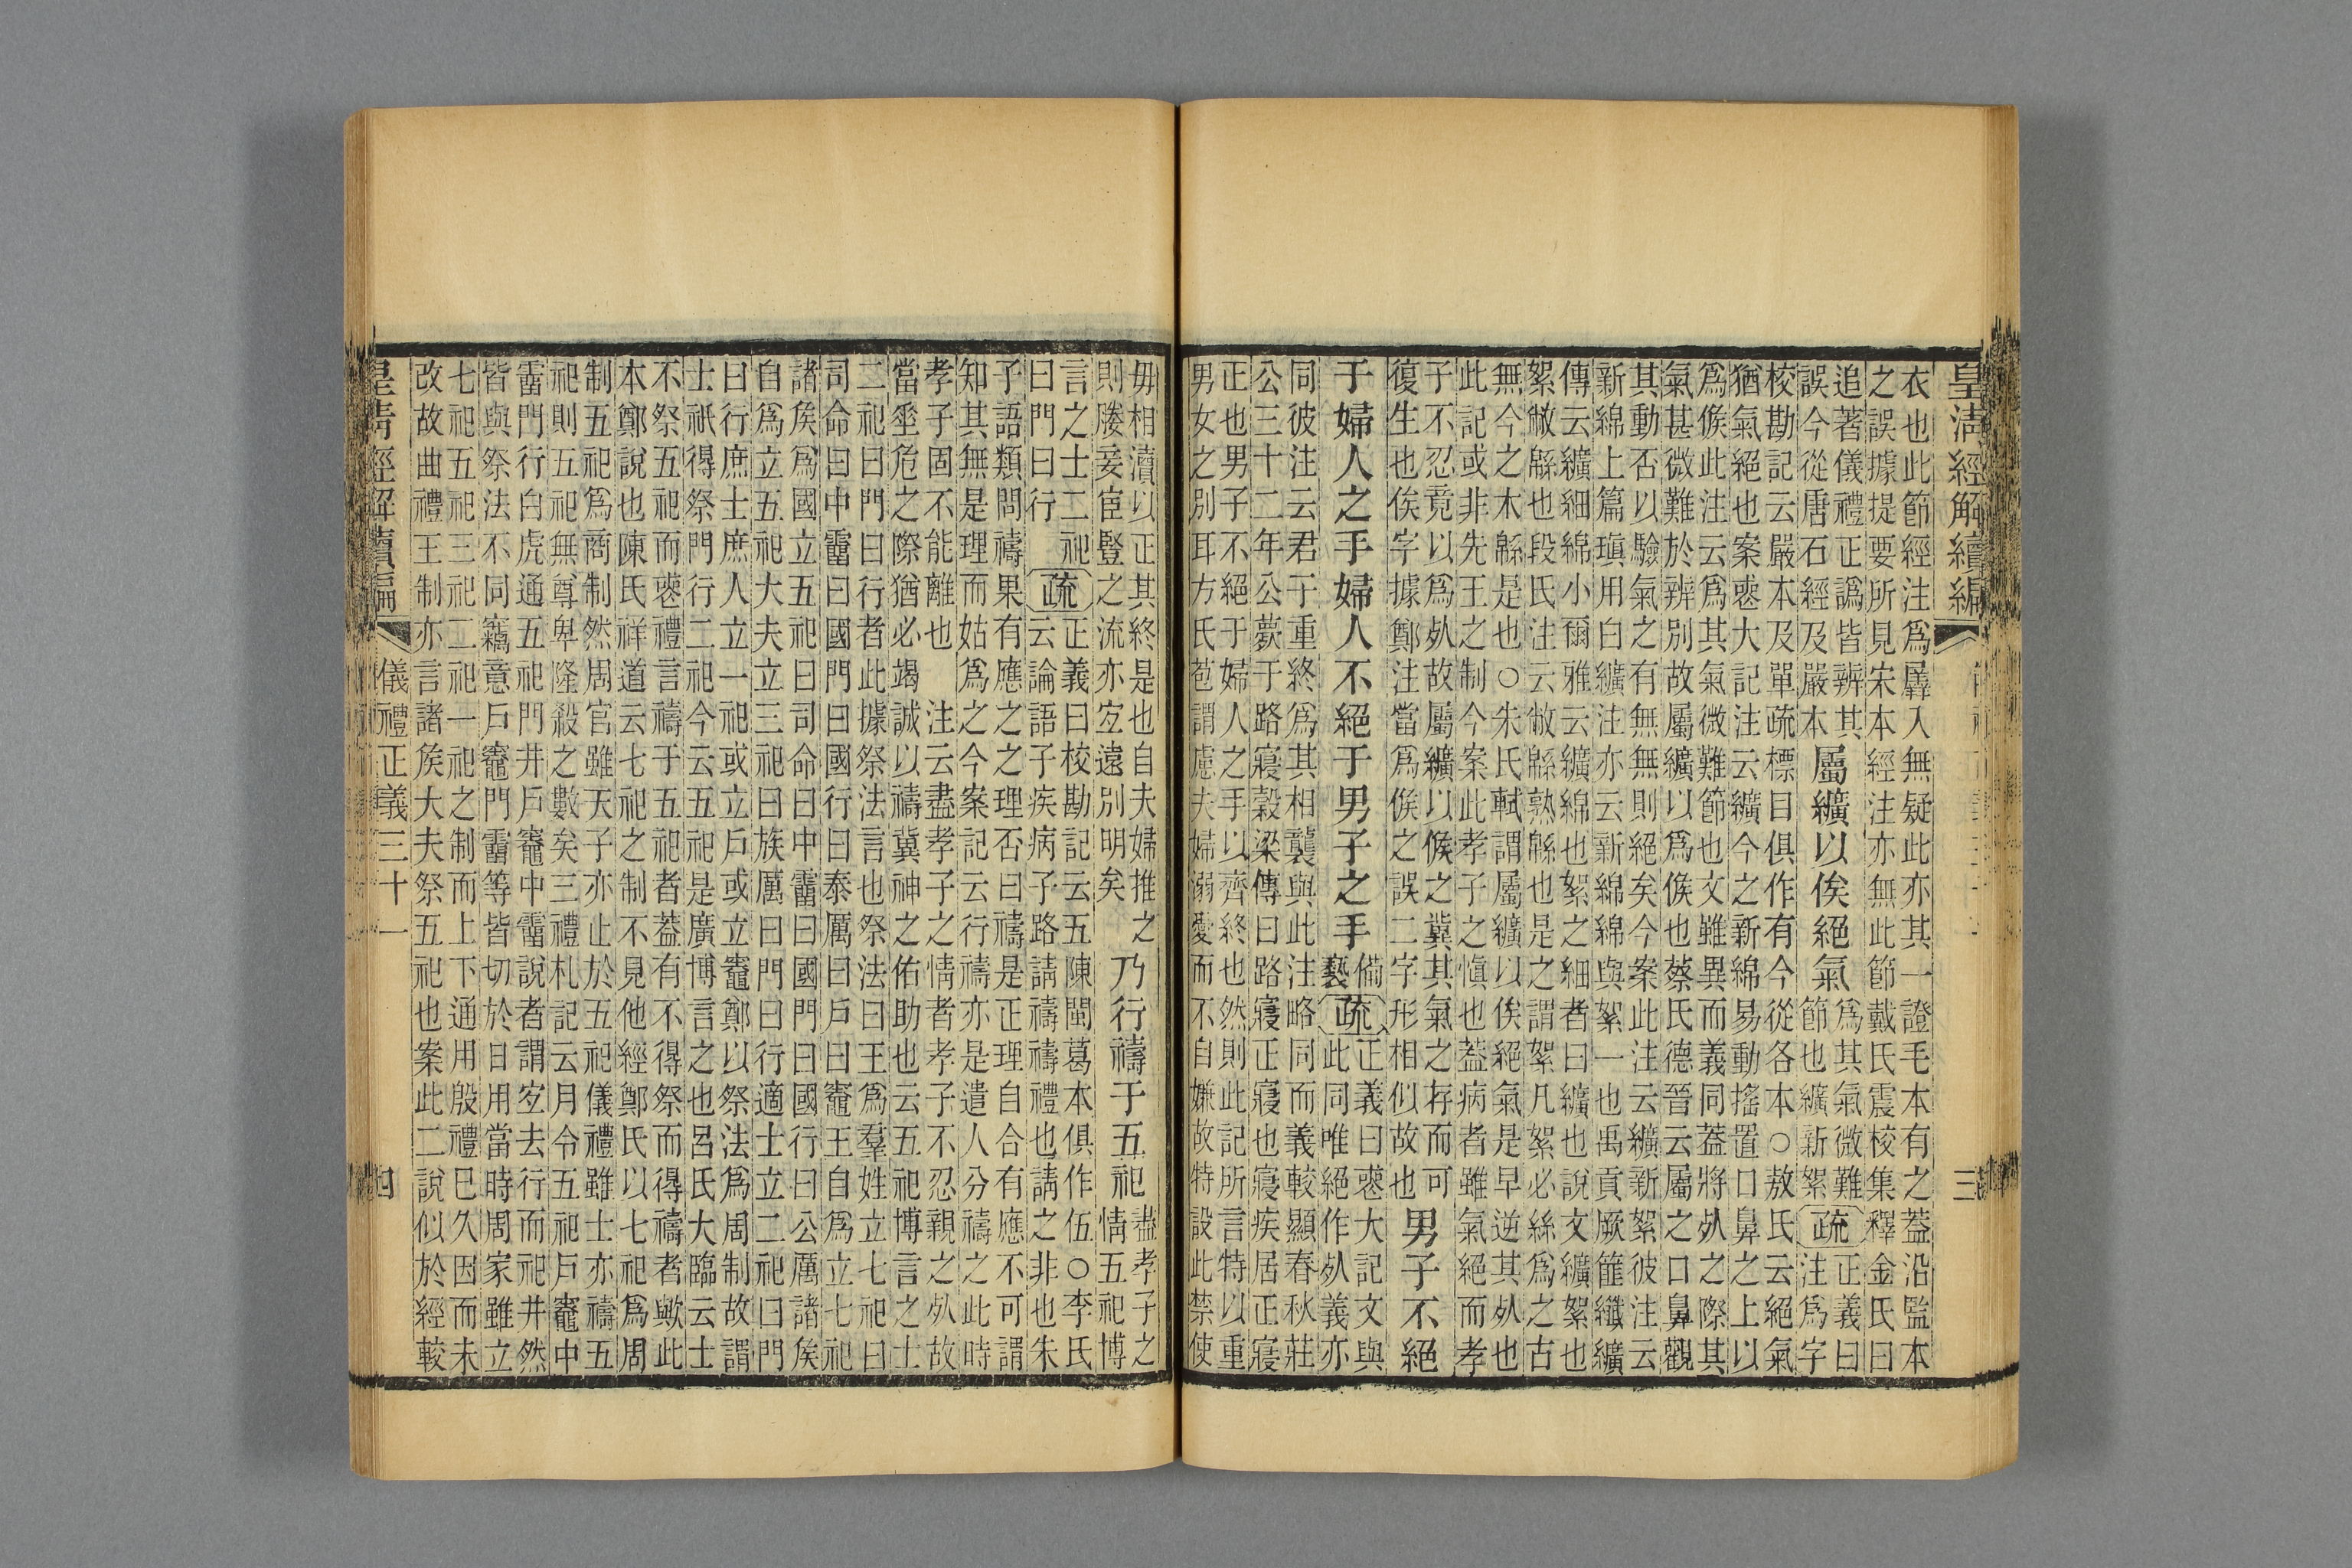 皇清經解續編
三
衣也此節經注爲屨入無疑此亦其一證毛本有之蓋沿監本
之誤據提要所見宋本經注亦無此節戴氏震校集釋金氏曰
追著儀禮正譌皆辨其
誤今從唐石經及嚴本
屬纊以俟絕氣
爲其氣微難
節也纊新絮
疏
正義曰
注爲字
校勘記云嚴本及單疏標目俱作有今從各本○敖氏云絕氣
猶氣絕也案喪大記注云纊今之新綿易動搖置口鼻之上以
爲候此注云爲其氣微難節也文雖異而義同蓋將死之際其
氣甚微難於辨別故屬纊以爲候也蔡氏德晉云屬之口鼻觀
其動否以驗氣之有無無則絕矣今案此注云纊新絮彼注云
新綿上篇瑱用白纊注亦云新綿綿與絮一也禹貢厥篚纖纊
傳云纊細綿小爾雅云纊綿也絮之細者曰纊也說文纊絮也
絮敝緜也段氏注云敝緜熟緜也是之謂絮凡絮必絲爲之古
無今之木緜是也○朱氏軾謂屬纊以俟絕氣是早逆其死也
此記或非先王之制今案此孝子之愼也蓋病者雖氣絕而孝
子不忍竟以爲死故屬纊以候之冀其氣之存而可
復生也俟字據鄭注當爲候之誤二字形相似故也
男子不絕
于婦人之手婦人不絕于男子之手
備
褻
疏
正義曰喪大記文與
此同唯絕作死義亦
同彼注云君子重終爲其相襲與此注略同而義較顯春秋莊
公三十二年公薨于路寢穀梁傳曰路寢正寢也寢疾居正寢
正也男子不絕于婦人之手以齊終也然則此記所言特以重
男女之別耳方氏苞謂慮夫婦溺愛而不自嫌故特設此禁使
毋相瀆以正其終是也自夫婦推之
則媵妾宦豎之流亦宜遠別明矣
乃行禱于五祀
盡孝子之
情五祀博
言之士二祀
曰門曰行
疏
正義曰校勘記云五陳閩葛本俱作伍○李氏
云論語子疾病子路請禱禱禮也請之非也朱
子語類問禱果有應之之理否曰禱是正理自合有應不可謂
知其無是理而姑爲之今案記云行禱亦是遣人分禱之此時
孝子固不能離也 注云盡孝子之情者孝子不忍親之死故
當垂危之際猶必竭誠以禱冀神之佑助也云五祀博言之士
二祀曰門曰行者此據祭法言也祭法曰王爲羣姓立七祀曰
司命曰中霤曰國門曰國行曰泰厲曰戶曰竈王自爲立七祀
諸矦爲國立五祀曰司命曰中霤曰國門曰國行曰公厲諸矦
自爲立五祀大夫立三祀曰族厲曰門曰行適士立二祀曰門
曰行庶士庶人立一祀或立戶或立竈鄭以祭法爲周制故謂
士祇得祭門行二祀今云五祀是廣博言之也呂氏大臨云士
不祭五祀而喪禮言禱于五祀者蓋有不得祭而得禱者歟此
本鄭說也陳氏祥道云七祀之制不見他經鄭氏以七祀爲周
制五祀爲商制然周官雖天子亦止於五祀儀禮雖士亦禱五
祀則五祀無尊卑隆殺之數矣三禮札記云月令五祀戶竈中
霤門行白虎通五祀門井戶竈中霤說者謂宜去行而祀井然
皆與祭法不同竊意戶竈門霤等皆切於日用當時周家雖立
七祀五祀三祀二祀一祀之制而上下通用殷禮巳久因而未
改故曲禮王制亦言諸矦大夫祭五祀也案此二說似於經較
皇清經解續編
儀禮正義三十一
四